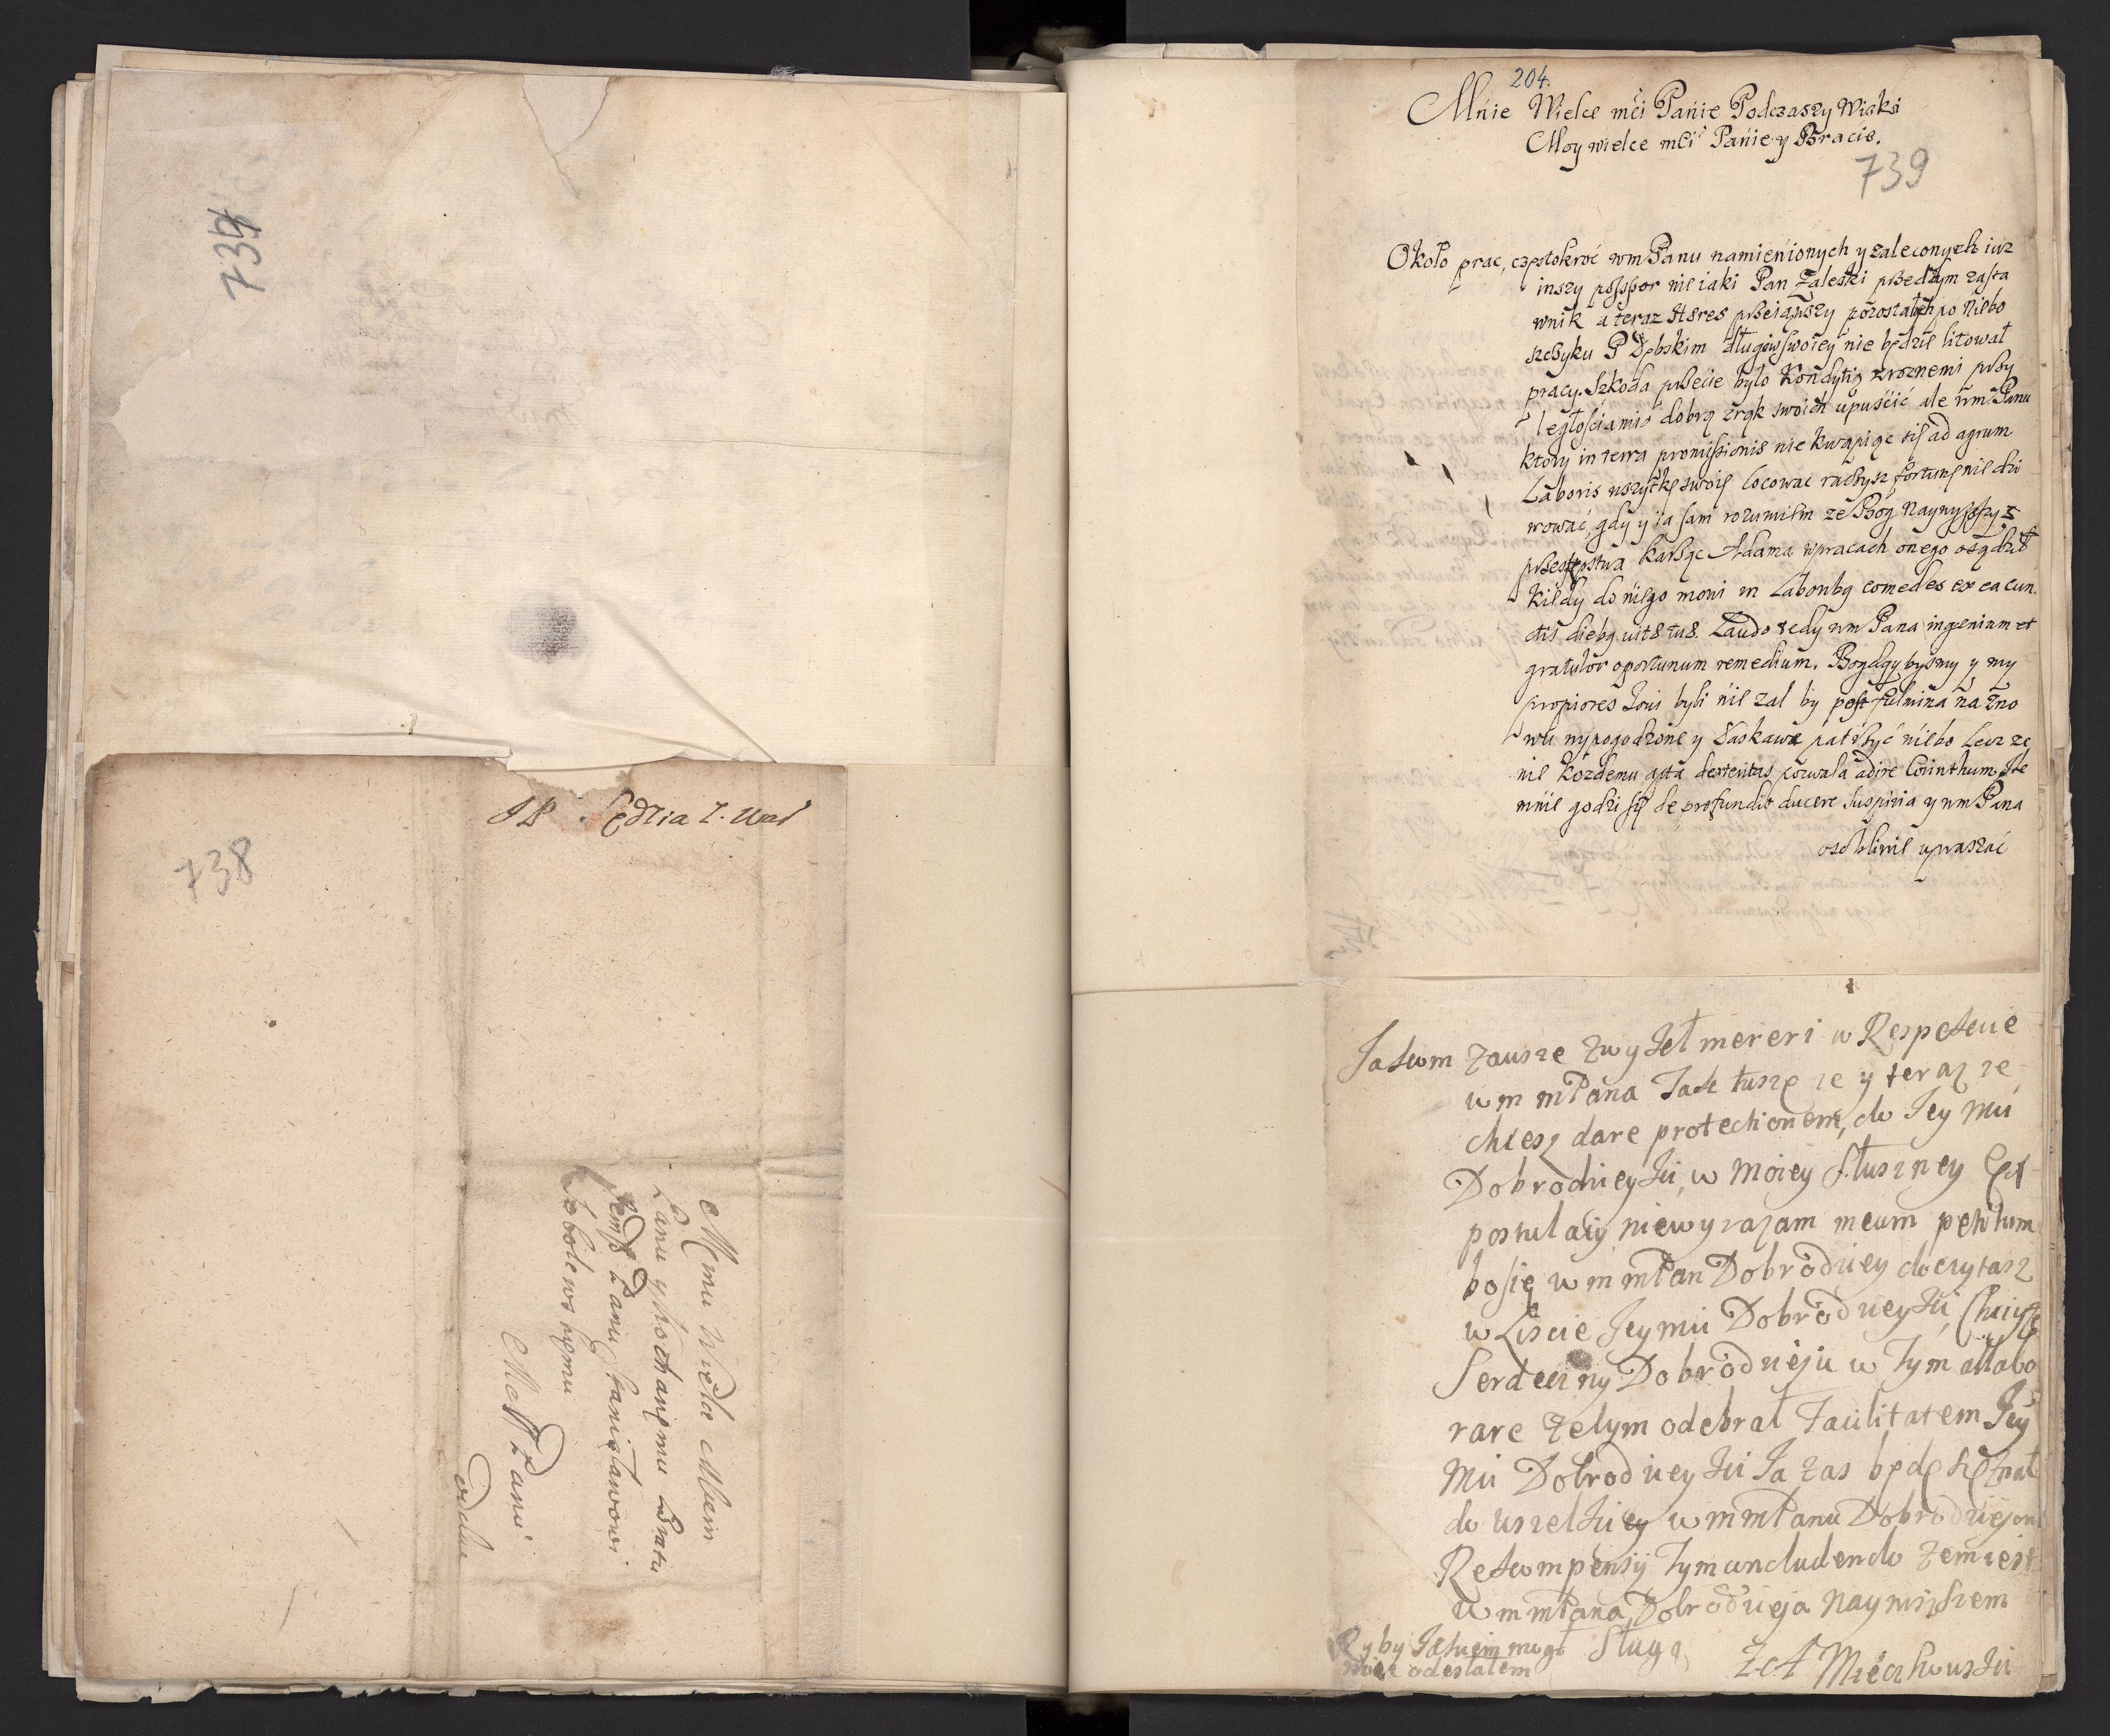 734
JP. Sędzia Z. War
738
Memu Wielce Mćiem
Panu y Kochanemu Bratu
Jemści Panu Stanisławowi
Sobolewskiemu
Mości Panu
oddac
204.
Mnie Wielce mći Panie Podczaszy Wiski
Moy wielce mći Panie y Bracie.
739
Około prac, częstokroć wm Panu namienionych y zaleconych iuz
inszy possessor nie iaki Pan Zaleski przedtym zasta
wnik a teraz Heres przeiąwszy pozostałych po Niebo
szczyku P Dębskim długow swoiey nie będzie litował
pracy. Szkoda przecie było Kondytią z roznemi przy
ległosciamis dobrą z rąk swoich upuścić ale wm Panu
ktory in terra promissionis nie kwapiąc się ad agrum
Laboris wszytkę swoię locowac raczysz fortunę nie dzi
wować, gdy y ia sam rozumiem ze Bog Naywyszszy z
przestępstwa karząc Adama w pracach onego osądził
Kiedy do niego mowi in Laboribq comedes ex ea cun
ctis diebq vitæ tuæ. Laudo tedy wm Pana ingenium et
gratulor oportunum remedium. Bogday bysmy y my
propiores Iovi byli nie zal by post fulmina na zno
wu wypogodzone y łaskawe patrzyć niebo Lecz ze
nie kozdemu apta dexteritas pozwala adire Corinthum, Ile
mnie godzi się de profundis ducere suspiria y wm Pana
osobliwie upraszać
Jakom zawsze zwykł mereri w Respekcie
wm mPana Tak tuszę ze y teraz ze
chcesz dare protectionem, do Jey Mći
Dobrodzieyki, w moiey słuszney Ex
postulaiy niewyrazam meum petitum
bo się wm mPan Dobrodziey doczytasz
w Liscie Jeymći Dobrodzieyki, Chciey
Serdeczny Dobrodzieju w tym allabo
rare zebym odebrał Facilitatem Jey
Mći Dobrodzieyki Ja zas będę się znał
do wszelkiey wm mPanu Dobrodziejowi
Rekompensy tym concludendo zem iest
wm mPana Dobrodzieja Nayniszszem
Sługą
Z A Mieczkowski
odesłałem